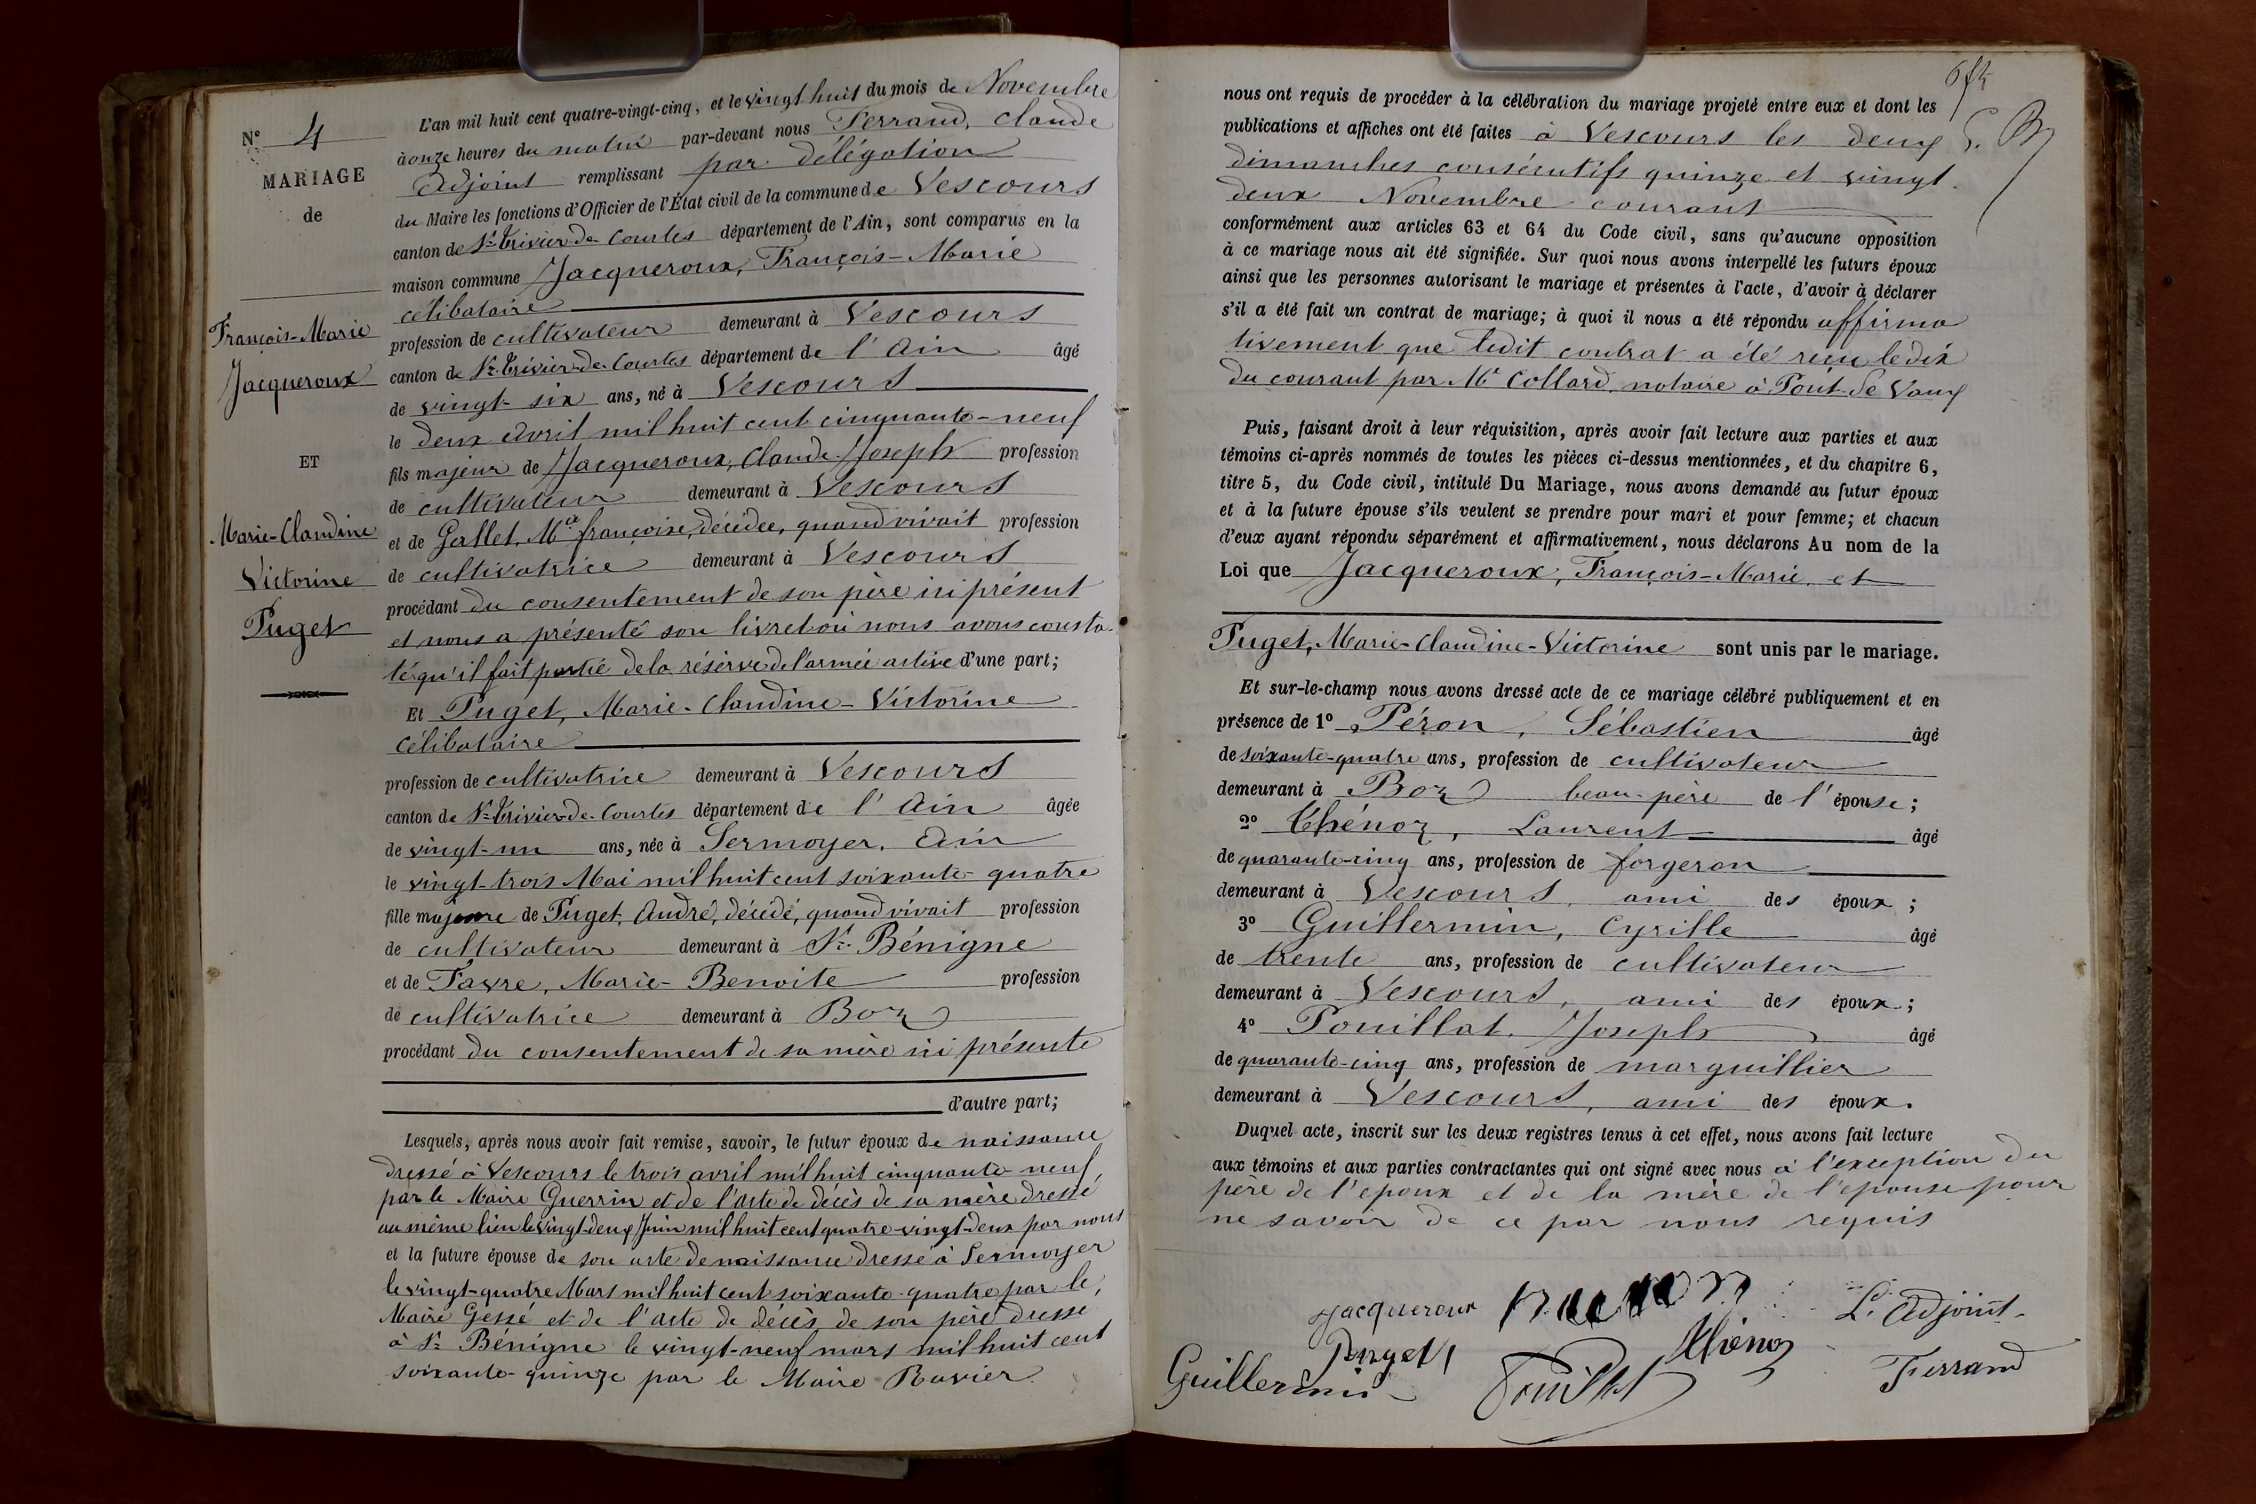 N° 4
MARIAGE
de
François-Marie
Jacqueroux
ET
Marie-Claudine
Victorine
Puget
L'an mil huit cent quatre-vingt-cinq, et le vingt huit du mois de Novembre
à onze heures du matin par-devant nous Ferrand, Claude
Adjoint remplissant par délégation
du Maire les fonctions d'Officier de l'État civil de la commune de Vescours
canton de St Trivier-de-Courtes département de l'Ain, sont comparus en la
maison commune Jacqueroux, François-Marie
célibataire
profession de cultivateur demeurant à Vescours
canton de St Trivier-de-Courtes département de l'Ain âgé
de vingt-six ans, né à Vescours
le deux avril mil huit cent cinquante-neuf
fils majeur de Jacqueroux, Claude Joseph profession
de cultivateur demeurant à Vescours
et de Gallet, Mie françoise, décédée, quand vivait profession
de cultivatrice demeurant à Vescours
procédant du consentement de son père ici présent
et nous a présenté son livret où nous avons consta-
té qu'il fait partie de la réserve de l'armée active d'une part;
Et Puget, Marie-Claudine-Victorine
célibataire
profession de cultivatrice demeurant à Vescours
canton de St Trivier-de-Courtes département de l'Ain âgée
de vingt-un ans, née à Sermoyer, Ain
le vingt-trois Mai mil huit cent soixante-quatre
fille majeure de Puget, André, décédé, quand vivait profession
de cultivateur demeurant à St Bénigne
et de Favre, Marie-Benoite profession
de cultivatrice demeurant à Boz
procédant du consentement de sa mère ici présente
d'autre part;
Lesquels, après nous avoir fait remise, savoir, le futur époux de naissance
dressé à Vescours le trois avril mil huit cinquante-neuf,
par le Maire Guerrin et de l'acte de décès de sa mère dressé
au même lieu le vingt-deux Juin mil huit cent quatre-vingt-deux par nous
et la future épouse de son acte de naissance dressé à Sermoyer
le vingt-quatre Mars mil huit cent soixante-quatre par le,
Maire Gessé et de l'acte de décès de son père dressé
à St Bénigne le vingt-neuf mars mil huit cent
soixante-quinze par le Maire Ravier.
nous ont requis de procéder à la célébration du mariage projeté entre eux et dont les
publications et affiches ont été faites à Vescours les deux
dimanches consécutifs quinze et vingt-
deux Novembre courant
conformément aux articles 63 et 64 du Code civil, sans qu'aucune opposition
à ce mariage nous ait été signifiée. Sur quoi nous avons interpellé les futurs époux
ainsi que les personnes autorisant le mariage et présentes à l'acte, d'avoir à déclarer
s'il a été fait un contrat de mariage; à quoi il nous a été répondu affirma
tivement que ledit contrat a été reçu le dix
du courant par Me Collard, notaire à Pont-de Vaux
Puis, faisant droit à leur réquisition, après avoir fait lecture aux parties et aux
témoins ci-après nommés de toutes les pièces ci-dessus mentionnées, et du chapitre 6,
titre 5, du Code civil, intitulé Du Mariage, nous avons demandé au futur époux
et à la future épouse s'ils veulent se prendre pour mari et pour femme; et chacun
d'eux ayant répondu séparément et affirmativement, nous déclarons Au nom de la
Loi que Jacqueroux, François-Marie, et
Puget, Marie-Claudine-Victorine sont unis par le mariage.
Et sur-le-champ nous avons dressé acte de ce mariage célébré publiquement et en
présence de 1° Péron, Sébastien âgé
de soixante-quatre ans, profession de cultivateur
demeurant à Boz beau-père de l'épouse;
2° Thénoz, Laurent âgé
de quarante-cinq ans, profession de forgeron
demeurant à Vescours, ami des époux;
3° Guillermin, Cyrille âgé
de trente ans, profession de cultivateur
demeurant à Vescours, ami des époux;
4° Pouillat, Joseph âgé
de quarante-cinq ans, profession de marguillier
demeurant à Vescours, ami des époux.
Duquel acte, inscrit sur les deux registres tenus à cet effet, nous avons fait lecture
aux témoins et aux parties contractantes qui ont signé avec nous à l'exception du
père de l'époux et de la mère de l'épouse pour
ne savoir de ce par nous requis
Jacqueroux
L'Adjoint
Puget
Thénoz
Guillermin
Pouillat
Ferrand